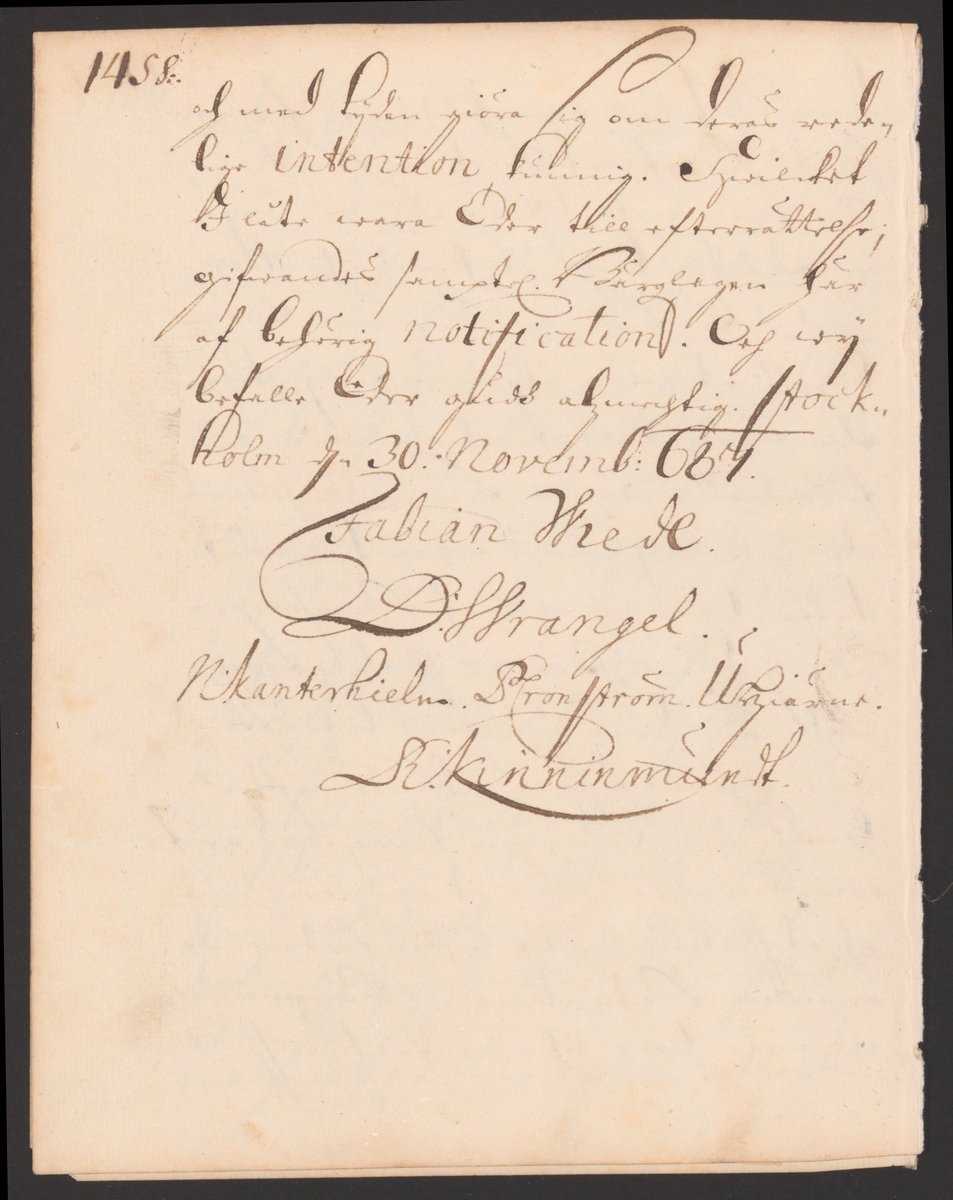 1458:
och med tyden giöra sig om deras reda¬
lige intention kunnig. Hwilcket
I late wara Eder till efterrättelse;
gifwandes samptel. Bärglagen här
af behörig notification. Och wy
befalle Eder gudh alzmechtig. Stock¬
holm dn 30. Novemb: 687.
Fabian Wrede.
D: Wrangel.
N: Kanterhielm. P Cronström. U Hiärne.
R: Kinninmundt.